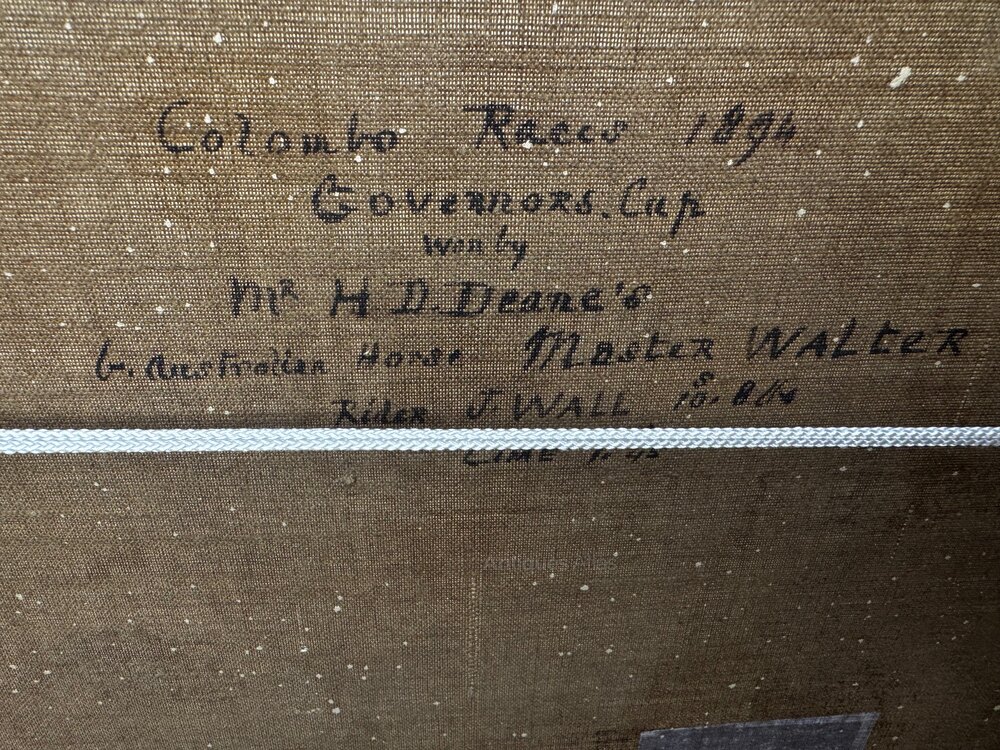 Colombo Races 1894
Governors. Cup
won by
MR H D. Deane's
b. Australian Horse Master WALtER
Rider J. WALL
time
Antiques Atlas